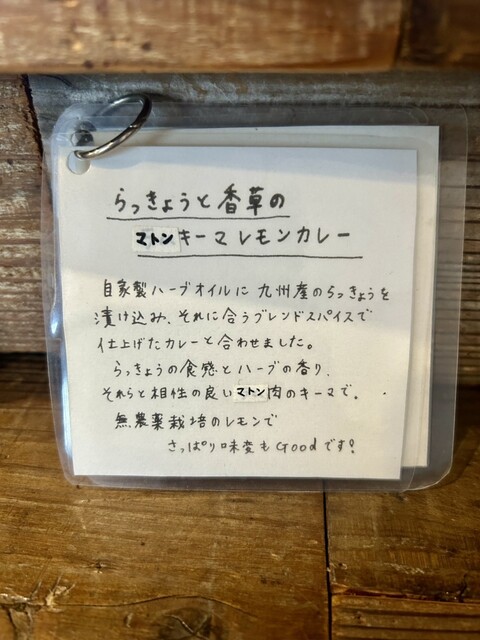 らっきょうと香草の
マトンキーマレモンカレー
自家製ハーブオイルに九州産のらっきょうを
漬け込み、それに合うブレンドスパイスで
仕上げたカレーと合わせました。
らっきょうの食感とハーブの香り、
それらと相性の良いマトン肉のキーマで。
無農薬栽培のレモンで
さっぱり味変もGoodです!